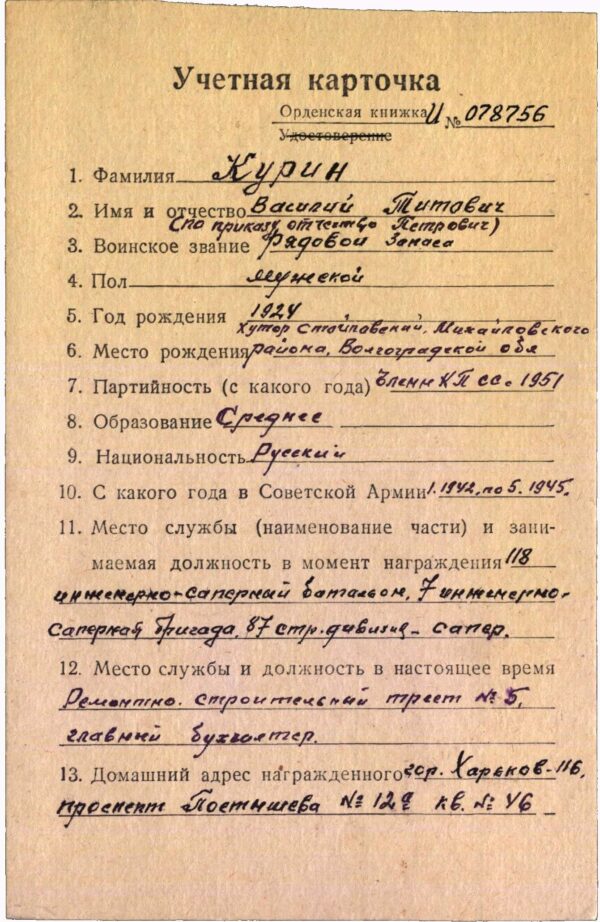 Учетная карточка
Орденская книжка И № 078756
Удостоверение
1. Фамилия Курин
2. Имя и отчество Василий Титович
(по приказу отчество Петрович)
3. Воинское звание Рядовой запаса
4. Пол мужской
5. Год рождения 1924
Хутор Стойловский, Михайловского
6. Место рождения района, Волгоградской обл
7. Партийность (с какого года) Член КПСС с 1951
8. Образование Среднее
9. Национальность Русский
10. С какого года в Советской Армии 1.1942. по 5. 1945.
11. Место службы (наименование части) и зани-
маемая должность в момент награждения 118
инженерно-саперный батальон, 7 инженерно-
саперная бригада, 87 стр. дивизия - сапер.
12. Место службы и должность в настоящее время
Ремонтно. строительный трест № 5,
главный бухгалтер.
13. Домашний адрес награжденного гор. Харьков-116,
проспект Постышева № 129 кв. № 46